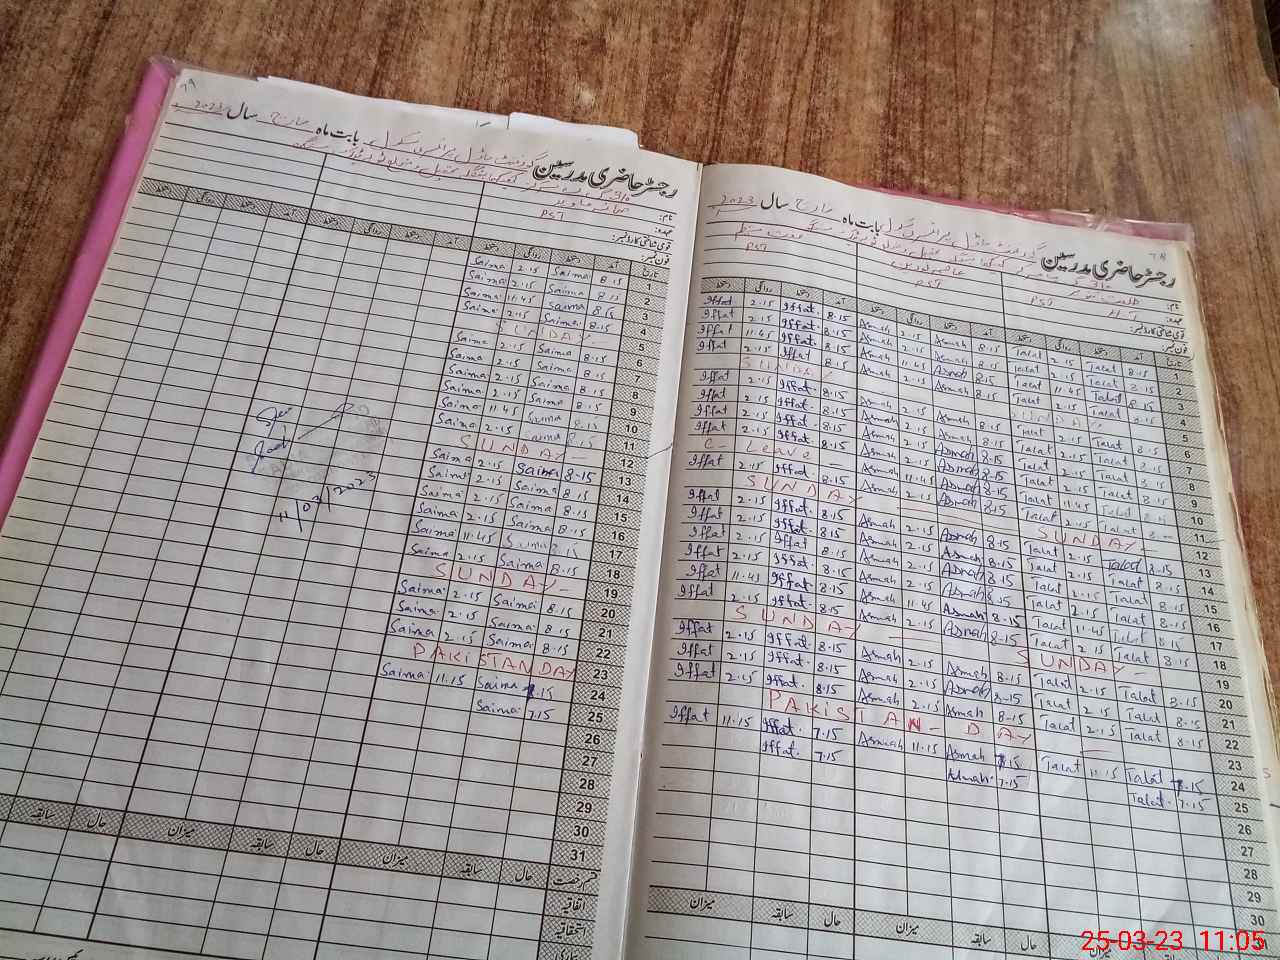 ۶۸
رجسٹر حاضری مدرسین گورنمنٹ ماڈل پرائمری سکول بابت ماہ مارچ سال 2023
نام:
عہدہ: PST PST PST
قومی شناختی کارڈ نمبر:
فون نمبر:
تاریخ آمد دستخط روانگی دستخط آمد دستخط روانگی دستخط آمد دستخط روانگی دستخط
Iffat 2.15 Iffat. 8.15 Asmah 2.15 Asmah 8.15 Talat 2.15 Talat 8.15 1
Iffat 2.15 Iffat. 8.15 Asmah 2.15 Asmah 8.15 Talat 2.15 Talat 8.15 2
Iffat 11.45 Iffat. 8.15 Asmah 11.45 Asmah 8.15 Talat 11.45 Talat 8.15 3
Iffat 2.15 Iffat 8.15 Asmah 2.15 Asmah 8.15 Talat 2.15 Talat 8.15 4
SUNDAY SUNDAY 5
Iffat 2.15 Iffat. 8.15 Asmah 2.15 Asmah 8.15 Talat 2.15 Talat 8.15 6
Iffat 2.15 Iffat. 8.15 Asmah 2.15 Asmah 8.15 Talat 2.15 Talat 8.15 7
Iffat 2.15 Iffat. 8.15 Asmah 2.15 Asmah 8.15 Talat 2.15 Talat 8.15 8
Iffat 2.15 Iffat. 8.15 Asmah 2.15 Asmah 8.15 Talat 2.15 Talat 8.15 9
C-Leave – Asmah 11.45 Asmah 8.15 Talat 11.45 Talat 8.15 10
Iffat 2.15 Iffat. 8.15 Asmah 2.15 Asmah 8.15 Talat 2.15 Talat 11
SUNDAY SUNDAY 12
Iffat 2.15 Iffat. 8.15 Asmah 2.15 Asmah 8.15 Talat 2.15 Talat 8.15 13
Iffat 2.15 Iffat. 8.15 Asmah 2.15 Asmah 8.15 Talat 2.15 Talat 8.15 14
Iffat 2.15 Iffat. 8.15 Asmah 2.15 Asmah 8.15 Talat 2.15 Talat 8.15 15
Iffat 2.15 Iffat. 8.15 Asmah 2.15 Asmah 8.15 Talat 2.15 Talat 8.15 16
Iffat 11.45 Iffat. 8.15 Asmah 11.45 Asmah 8.15 Talat 11.45 Talat 8.15 17
Iffat 2.15 Iffat. 8.15 Asmah 2.15 Asmah 8.15 Talat 2.15 Talat 8.15 18
SUNDAY SUNDAY 19
Iffat 2.15 Iffat. 8.15 Asmah 2.15 Asmah 8.15 Talat 2.15 Talat 8.15 20
Iffat 2.15 Iffat. 8.15 Asmah 2.15 Asmah 8.15 Talat 2.15 Talat 8.15 21
Iffat 2.15 Iffat. 8.15 Asmah 2.15 Asmah 8.15 Talat 2.15 Talat 8.15 22
PAKISTAN DAY 23
Iffat 11.15 Iffat. 7.15 Asmah 11.15 Asmah 7.15 Talat 11.15 Talat 7.15 24
Iffat. 7.15 Asmah. 7.15 Talat. 7.15 25
26
27
28
29
30
حال سابقہ میزان حال سابقہ میزان
۶۹
رجسٹر حاضری مدرسین گورنمنٹ ماڈل پرائمری سکول بابت ماہ مارچ سال 2023
نام: صائمہ جاوید
عہدہ: PST
قومی شناختی کارڈ نمبر:
فون نمبر:
تاریخ آمد دستخط روانگی دستخط آمد دستخط روانگی دستخط آمد دستخط روانگی دستخط
Saima 2.15 Saima 8.15 1
Saima 2.15 Saima 8.15 2
Saima 11.45 Saima 8.15 3
Saima 2.15 Saima. 8.15 4
SUNDAY 5
Saima 2.15 Saima 8.15 6
Saima 2.15 Saima 8.15 7
Saima 2.15 Saima 8.15 8
Saima 2.15 Saima 8.15 9
Saima 11.45 Saima 8.15 10
Saima 2.15 Saima 8.15 11
SUNDAY 12
Saima 2.15 Saima 8.15 13
Saima 2.15 Saima 8.15 14
Saima 2.15 Saima 8.15 15
Saima 2.15 Saima 8.15 16
Saima 11.45 Saima 8.15 17
Saima 2.15 Saima 8.15 18
SUNDAY 19
Saima 2.15 Saima 8.15 20
Saima 2.15 Saima 8.15 21
Saima 2.15 Saima 8.15 22
PAKISTAN DAY 23
Saima 11.15 Saima 7.15 24
Saima 7.15 25
26
27
28
29
30
31
قسم رخصت حال سابقہ میزان حال سابقہ میزان حال سابقہ
اتفاقیہ
استحقاقیہ
بیماری
11/03/2023
25-03-23 11:05